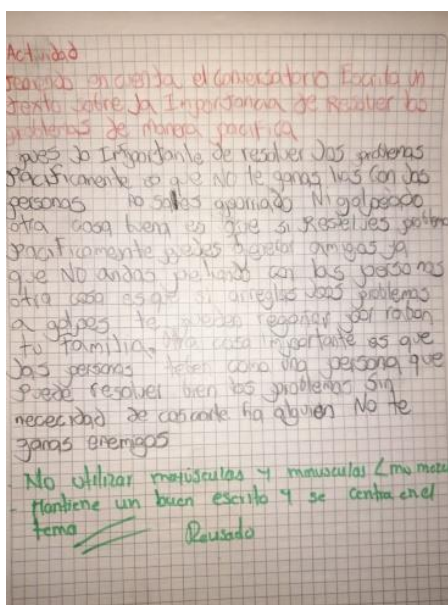 Actividad
teniendo en cuenta el conversatorio Escriba un
texto sobre la Importancia de Resolver los
problemas de manera pacifica
pues lo Importante de resolver los problemas
Pacificamente es que No te ganas lios con las
personas no sales aporriado Ni golpeado
otra cosa buena es que si Resuelves problema
pacificamente puedes tener amigas ya
que NO andas peliando con las personas
otra cosa es que si arreglas esos problemas
a golpes te pueden regañar por
tu familia. otra cosa importante es que
las personas te ten como una persona que
puede resolver bien los problemas sin
nececidad de cascarle ha alguien No te
ganas enemigos
- No utilizar mayúsculas y minusculas (mu
- Mantiene un buen escrito y se centra en el
tema
Revisado